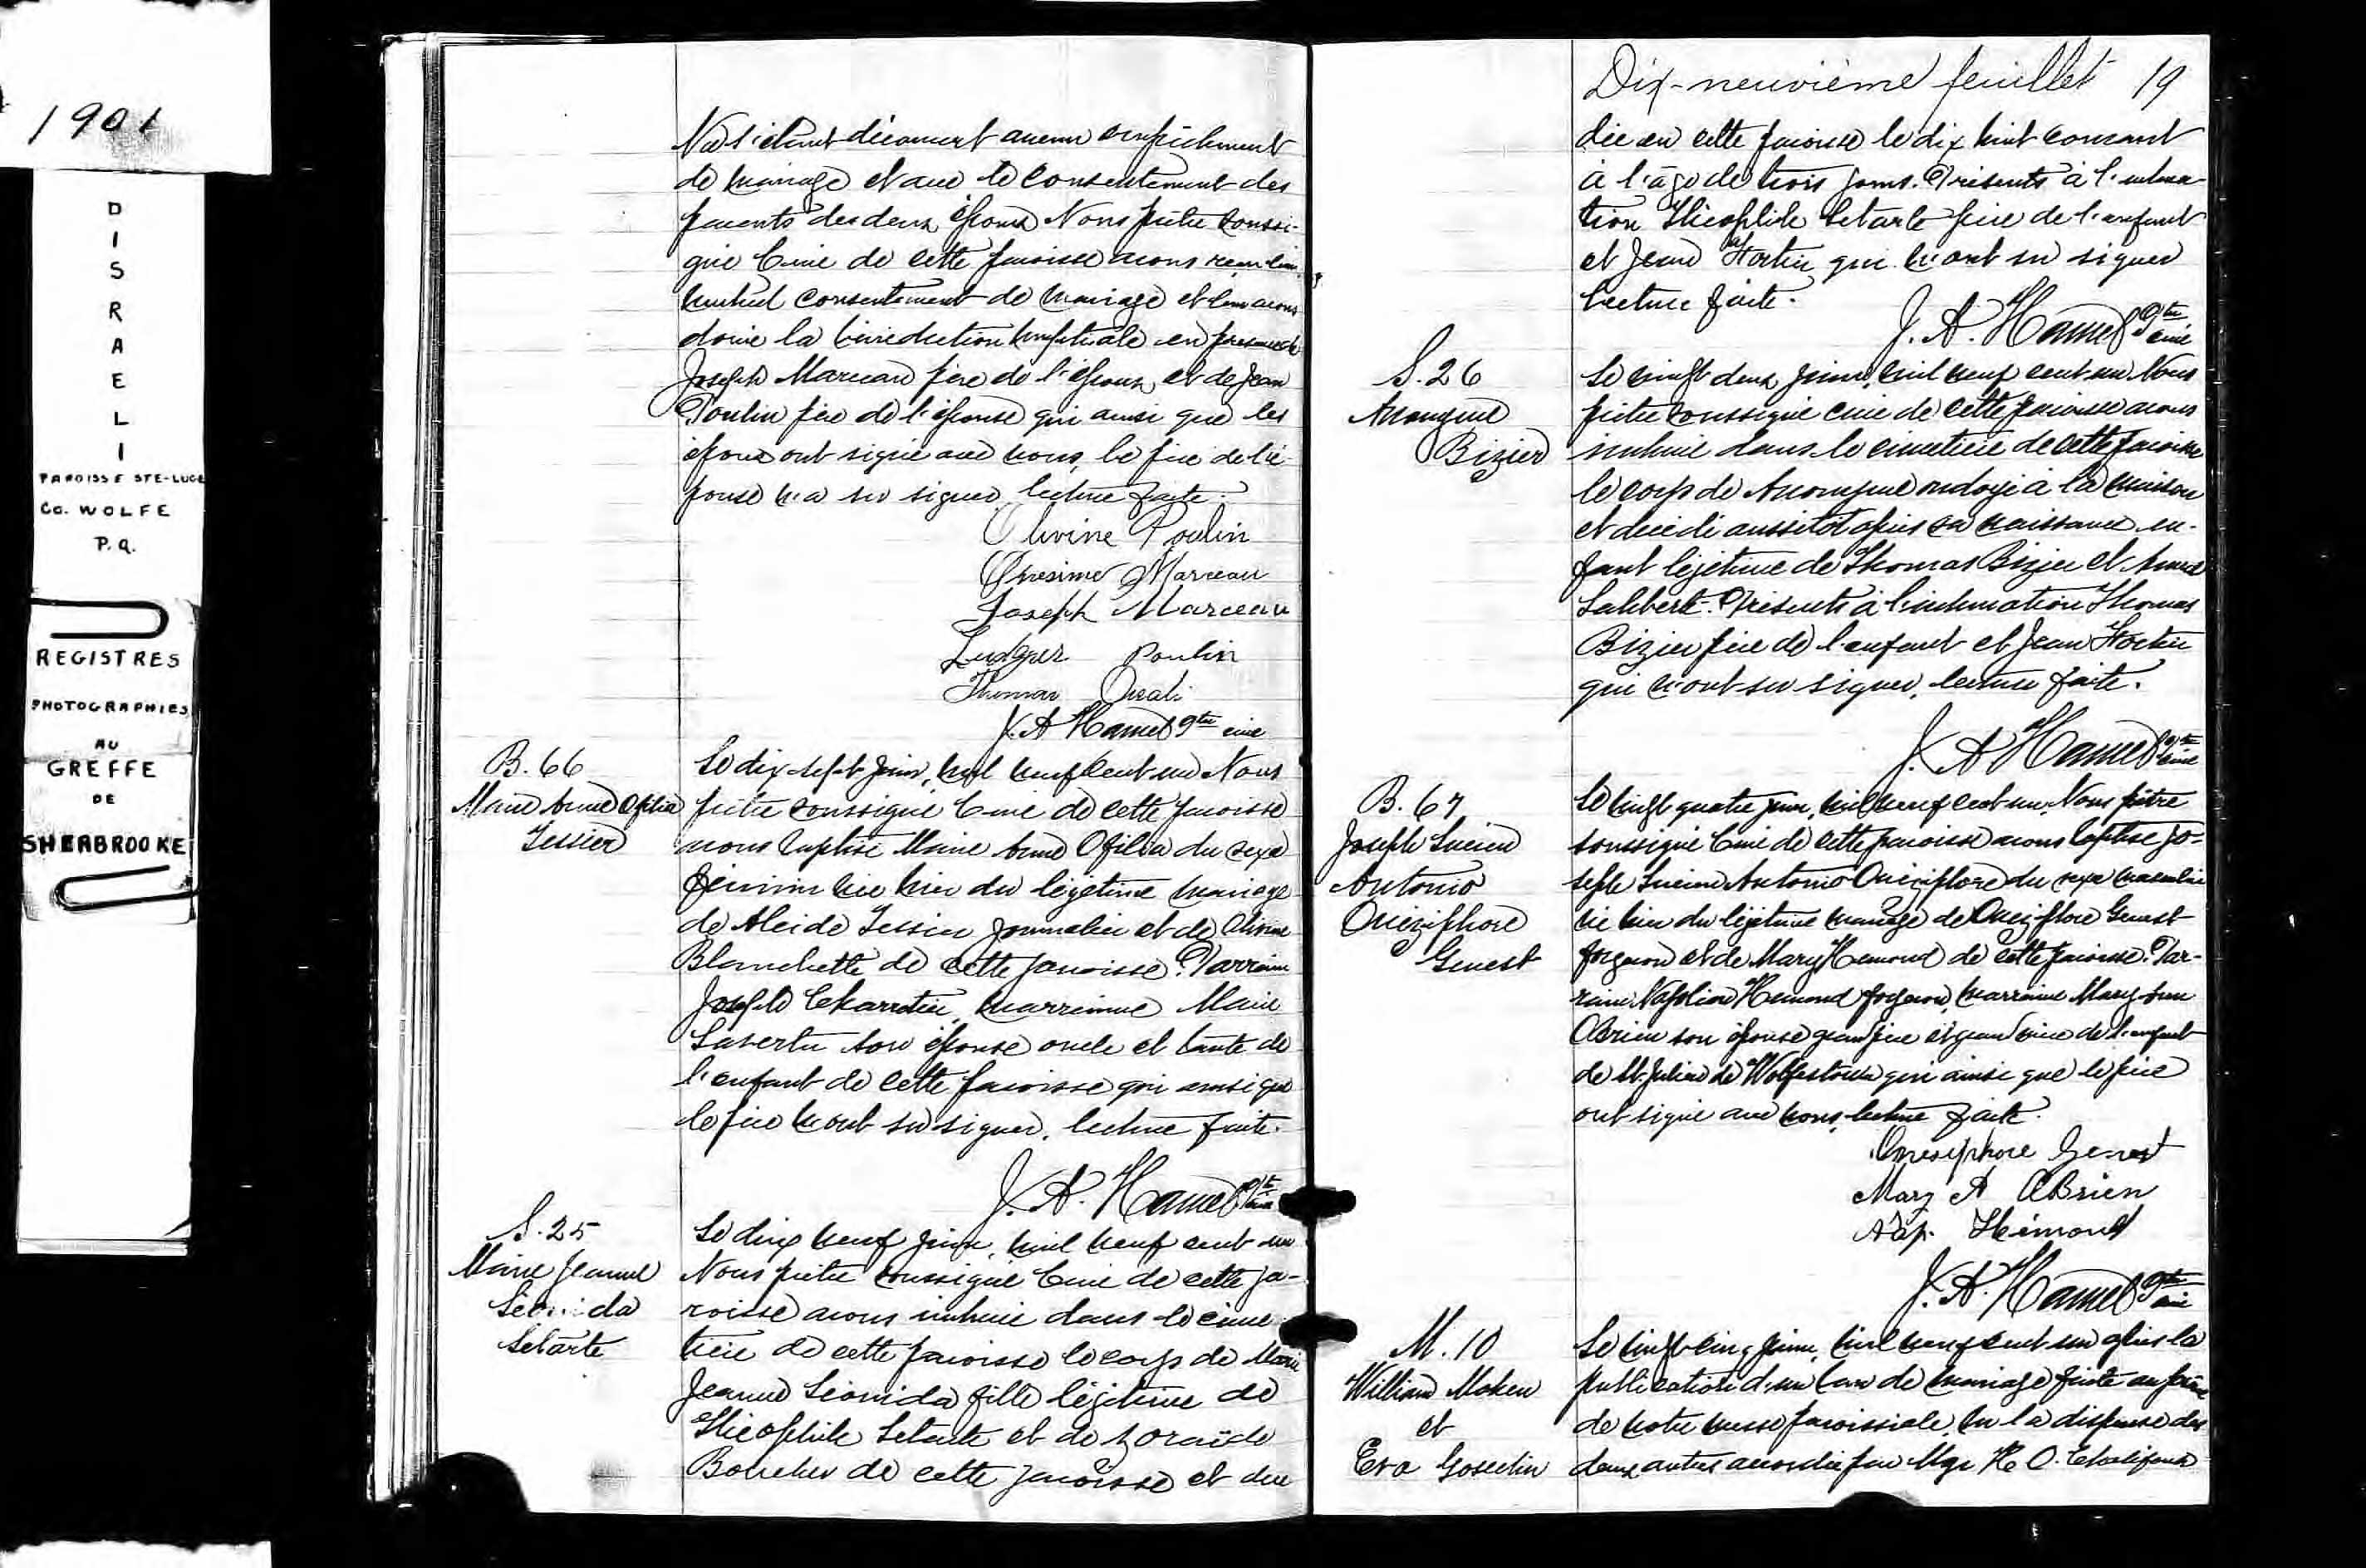 1901
D
I
S
R
A
E
L
I
PAROISSE STE-LUCE
Co. WOLFE
P.Q.
REGISTRES
PHOTOGRAPHIES
AU
GREFFE
DE
SHERBROOKE
Ne s'étant découvert aucun empêchement
de mariage et avec le consentement des
parents des deux époux Nous prêtre soussi-
gné Curé de cette paroisse avons reçu leur
mutuel consentement de mariage et leur avons
donné la bénédiction nuptiale en présence de
Joseph Marceau père de l'époux et de Jean
Poulin père de l'épouse qui ainsi que les
époux ont signé avec nous, le père de l'é-
pouse n'a su signer lecture faite.
Olivine Poulin
Onesime Marceau
Joseph Marceau
Ludger Poulin
Thomas
J. A. Hamel Ptre curé
B. 66
Marie Anne Ofilia
Tessier
Le dix sept Juin, mil neuf cent un Nous
prêtre soussigné Curé de cette paroisse
avons baptisé Marie Anne Ofilia du sexe
féminin née hier du légitime mariage
de Alcide Tessier journalier et de Olivine
Blanchette de cette paroisse. Parrain
Joseph Charretier, marraine Marie
Lavertu son épouse oncle et tante de
l'enfant de cette paroisse qui ainsi que
le père n'ont su signer. lecture faite.
J. A. Hamel Ptre curé
S. 25
Marie Jeanne
Léonida
Letarte
Le dix neuf Juin, mil neuf cent un
Nous prêtre soussigné Curé de cette pa-
roisse avons inhumé dans le cime-
tière de cette paroisse le corps de Marie
Jeanne Léonida fille légitime de
Théophile Letarte et de Zoraïde
Boucher de cette paroisse et décé-
Dix-neuvième feuillet 19
dée en cette paroisse le dix huit courant
à l'âge de trois jours. Présents à l'inhuma-
tion Théophile Letarte père de l'enfant
et Jean Fortin qui n'ont su signer
lecture faite.
J. A. Hamel Ptre curé
S. 26
Anonyme
Bizier
Le vingt deux Juin, mil neuf cent un Nous
prêtre soussigné curé de cette paroisse avons
inhumé dans le cimetière de cette paroisse
le corps de Anonyme ondoyé à la maison
et décédé aussitôt après sa naissance en-
fant légitime de Thomas Bizier et Anna
Laliberté. Présents à l'inhumation Thomas
Bizier père de l'enfant et Jean Fortin
qui n'ont su signer, lecture faite.
J. A. Hamel Ptre curé
B. 67
Joseph Lucien
Antonio
Onéziphore
Genest
Le vingt quatre juin, mil neuf cent un, Nous prêtre
soussigné Curé de cette paroisse avons baptisé Jo-
seph Lucien Antonio Onéziphore du sexe masculin
né hier du légitime mariage de Onéziphore Genest
forgeron et de Mary Hemond de cette paroisse. Par-
rain Napoléon Hemond forgeron, marraine Mary Ann
OBrien son épouse grand père et grand mère de l'enfant
de St. Julien de Wolfestown qui ainsi que le père
ont signé avec nous, lecture faite.
Onesiphore Genest
Mary A OBrien
Nap. Hémond
J. A. Hamel Ptre curé
M. 10
William Moken
et
Eva Gosselin
Le vingt cinq juin, mil neuf cent un après la
publication d'un ban de mariage faite au prône
de notre messe paroissiale, vu la dispense des
deux autres accordée par Mgr H. O. Chalifoux